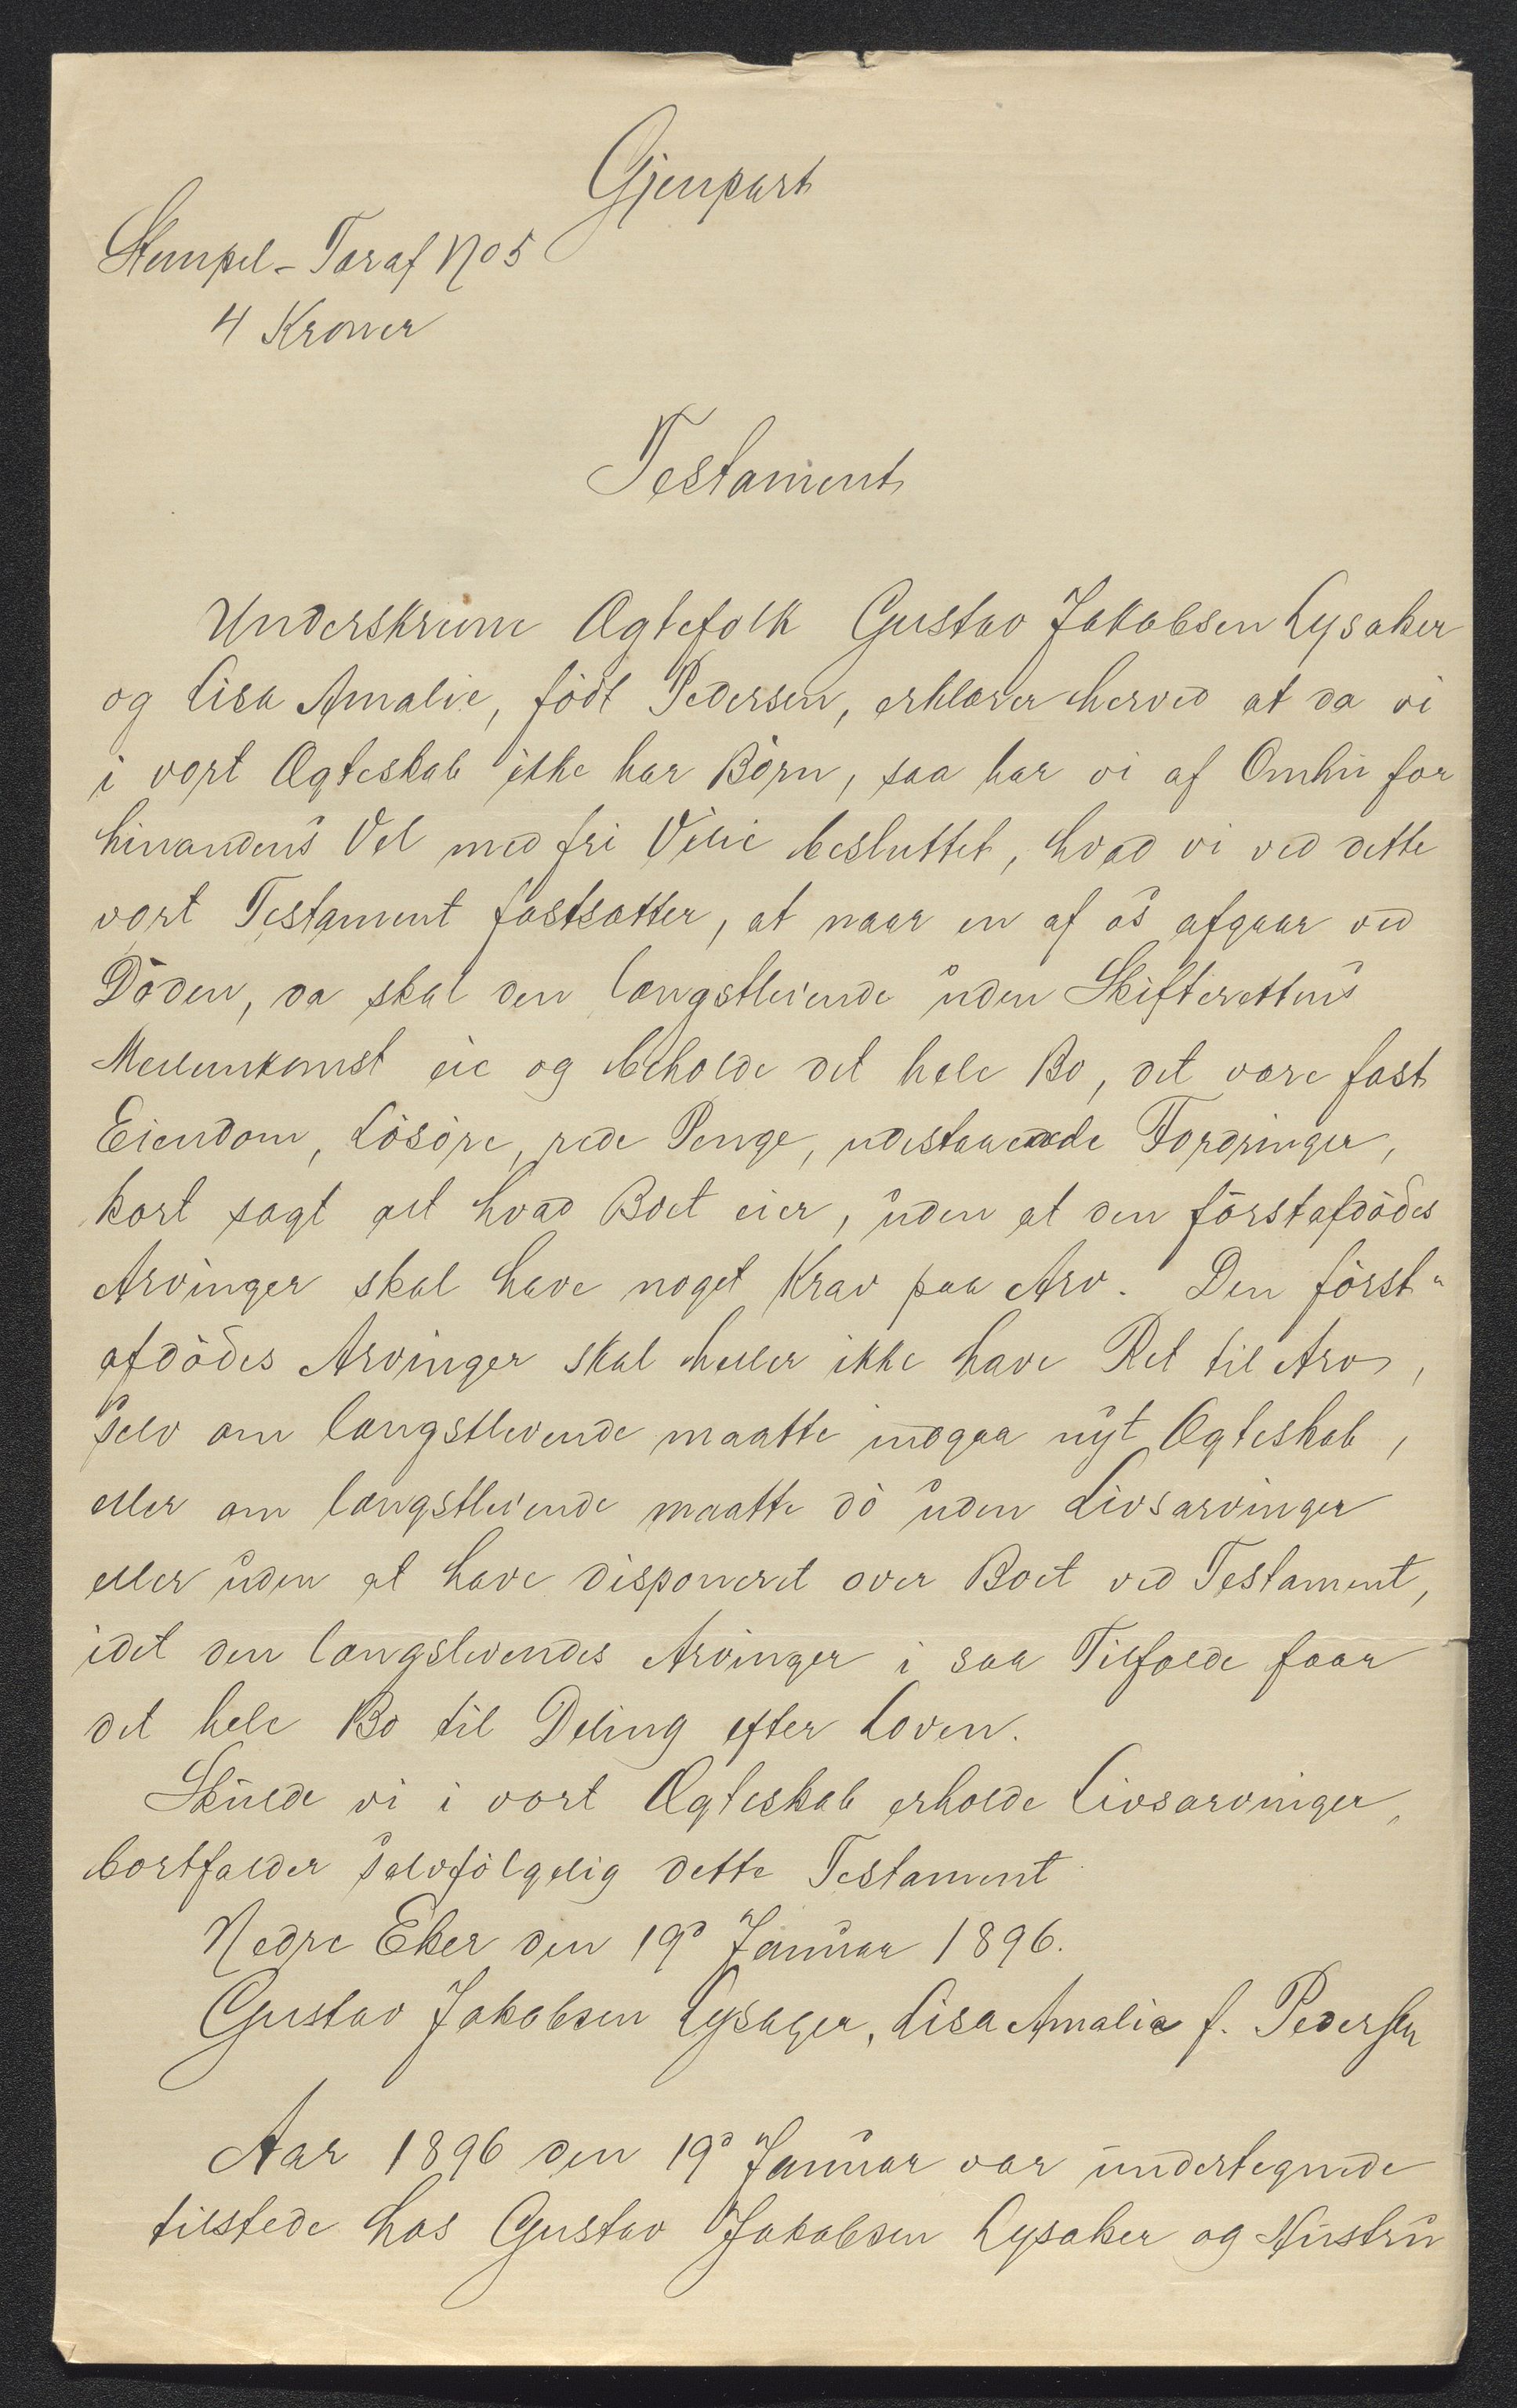 Gjenpart
Stempel-Taxaf No 5
4 Kroner
Testament
Underskrevne Ægtefolk Gustav Jakobsen Lysaker
og Lisa Amalie, født Pedersen, erklærer herved at da vi
i vort Ægteskab ikke har Børn, saa har vi af Omhu for
hinandens Vel med fri Vilie besluttet, hvad vi ved dette
vort Testament fastsætter, at naar en af os afgaar ved
Døden, da skal den længstlevende uden Skifterettens
Mellemkomst eie og beholde det hele Bo, det være fast
Eiendom, Løsøre, rede Penge, udestaaende Fordringer,
kort sagt alt hvad Boet eier, uden at den førstafdødes
Arvinger skal have noget Krav paa Arv. Den først-
afdødes Arvinger skal heller ikke have Ret til Arv,
selv om længstlevende maatte indgaa nyt Ægteskab,
eller om længstlevende maatte dø uden Livsarvinger
eller uden at have disponeret over Boet ved Testament,
idet den længslevendes Arvinger i saa Tilfælde faar
det hele Bo til Deling efter Loven.
Skulde vi i vort Ægteskab erholde Livsarvinger,
bortfalder selvfølgelig dette Testament
Nedre Eker den 19d Januar 1896.
Gustav Jakobsen Lysager, Lisa Amalie f. Pedersen
Aar 1896 den 19d Januar var undertegnede
tilstede hos Gustav Jakobsen Lysaker og Hustru